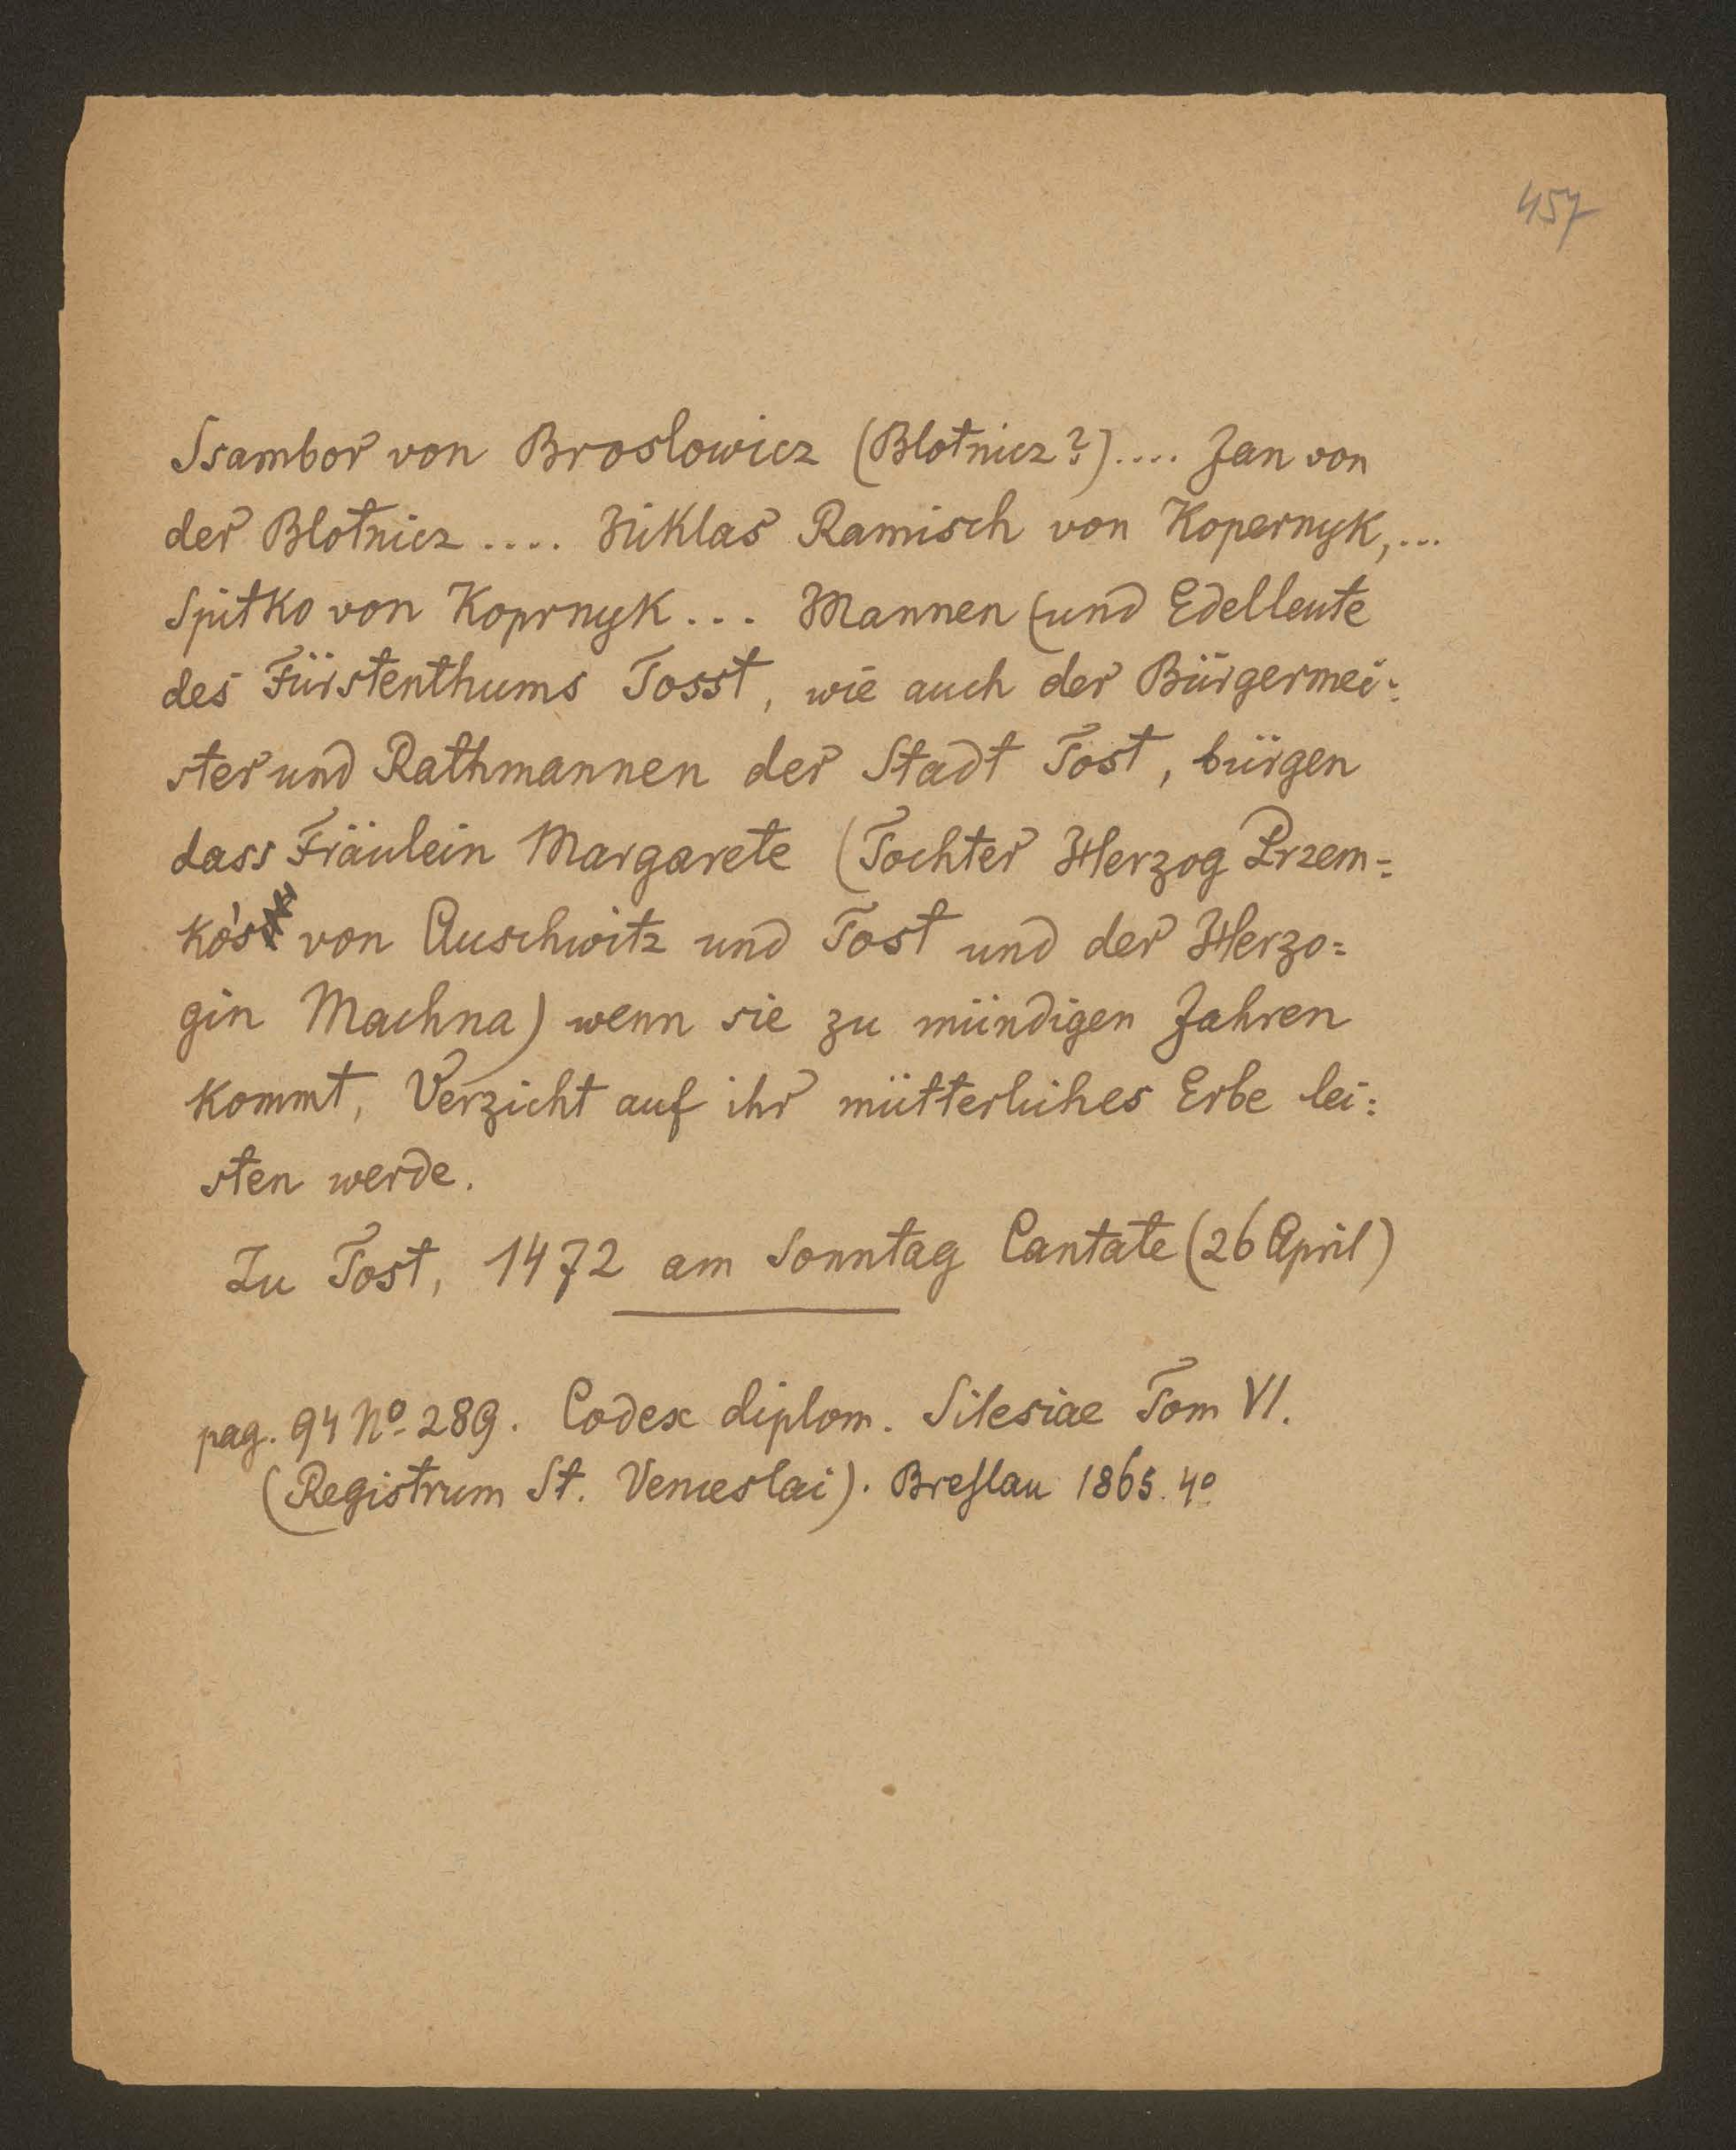 457
Ssambor von Broslowicz (Blotnicz?).... Jan von
der Blotnicz .... Niklas Ramisch von Kopernyk,...
Spitko von Koprnyk... Mannen (und Edelleute
des Fürstenthums Tosst, wie auch der Bürgermei-
ster und Rathmannen der Stadt Tost, bürgen
dass Fräulein Margarete (Tochter Herzog Przem=
ko's von Auschwitz und Tost und der Herzo=
gin Machna) wenn sie zu mündigen Jahren
kommt, Verzicht auf ihr mütterliches Erbe lei:
sten werde.
Zu Tost, 1472 am Sonntag Cantate (26 April)
pag. 94 No. 289. Codex diplom. Silesiae Tom VI.
(Registrum St. Venceslai). Breſlau 1865. 4o